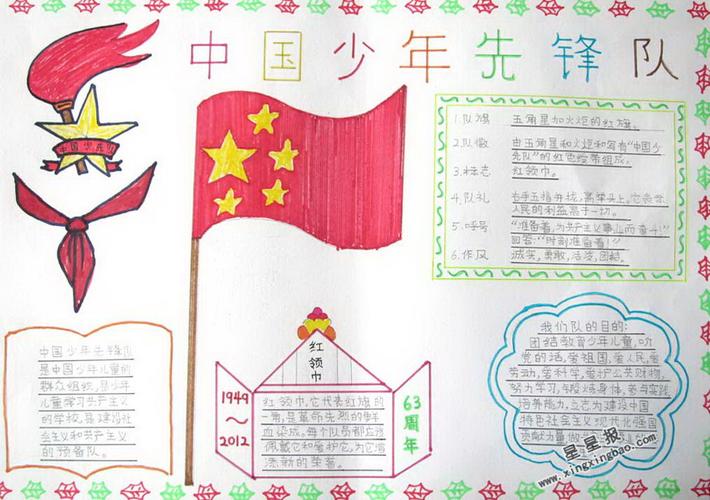 中国少年先锋队
中国少先队
1.队旗 五角星加火炬的红旗。
2.队徽 由五角星和火炬和写有"中国少
先队"的红色绶带组成。
3.标志 红领巾。
4.队礼 右手五指并拢,高举头上。它表示
人民的利益高于一切。
5.呼号 "准备着,为共产主义事业而奋斗!"
回答:"时刻准备着!"
6.作风 诚实,勇敢,活泼,团结。
中国少年先锋队
是中国少年儿童的
群众组织,是少年
儿童学习共产主义
的学校,是建设社
会主义和共产主义
的预备队。
红领巾
1949
~
2012
红领巾,它代表红旗的
一角,是革命先烈的鲜
血染成。每个队员都应该
佩戴它和爱护它,为它增
添新的荣誉。
63周年
我们队的目的:
团结教育少年儿童,听
党的话,爱祖国,爱人民,爱
劳动,爱科学,爱护公共财物,
努力学习,锻炼身体,参与实践,
培养能力,立志为建设中国
特色社会主义现代化强国
贡献力量
星星报
www.xingxingbao.com